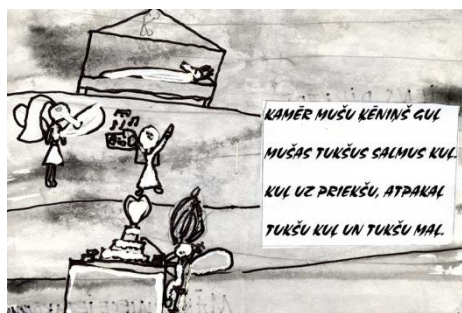 KAMĒR MUŠU ĶĒNIŅŠ GUĻ
MUŠAS TUKŠUS SALMUS KUĻ.
KUĻ UZ PRIEKŠU, ATPAKAĻ
TUKŠU KUĻ UN TUKŠU MAĻ.